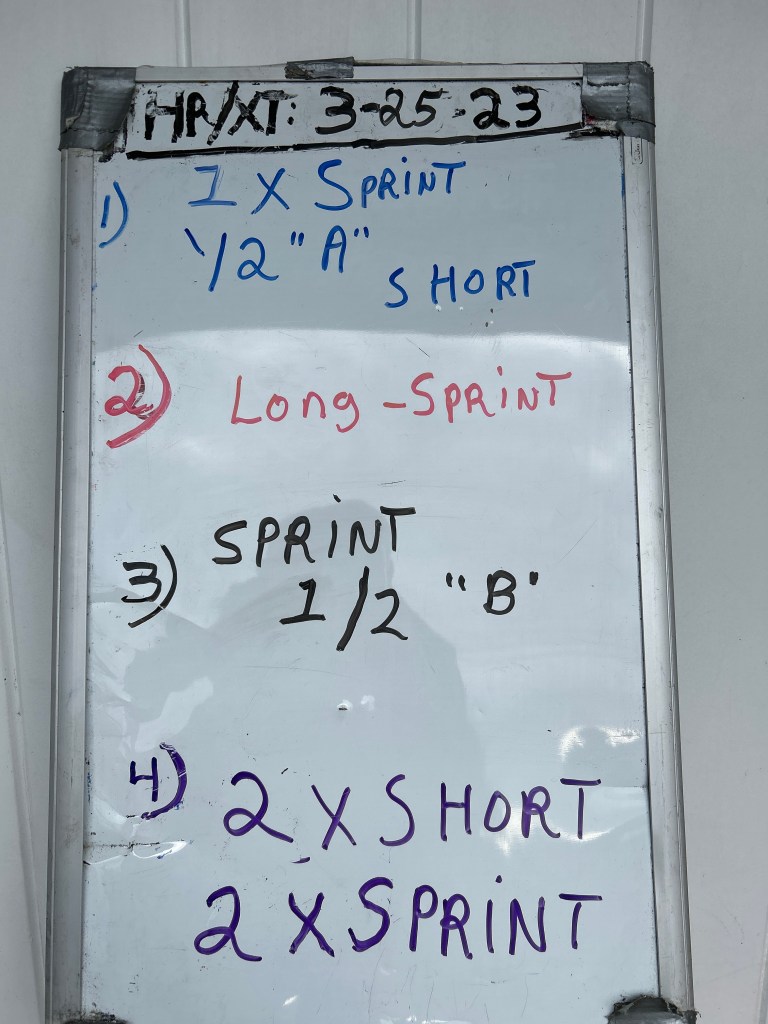 HR/XT: 3-25-23
1) 1 X SPRINT
1/2 "A"
SHORT
2) Long - SPRINT
SPRINT
3) 1/2 "B"
4) 2 X SHORT
2 X SPRINT